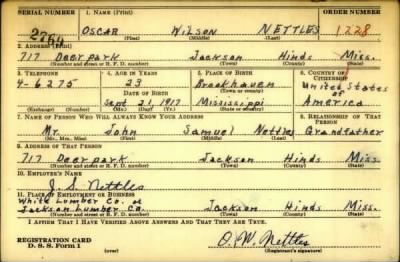 SERIAL NUMBER 1. NAME (Print) ORDER NUMBER
2766 OSCAR WILSON NETTLES 1228
(First) (Middle) (Last)
2. ADDRESS (Print)
717 Deerpark Jackson Hinds Miss.
(Number and street or R. F. D. number) (Town) (County) (State)
3. TELEPHONE 4. AGE IN YEARS 5. PLACE OF BIRTH 6. COUNTRY OF CITIZENSHIP
4-6275 23 Brookhaven United States
DATE OF BIRTH (Town or county) of
Sept. 21, 1917 Mississippi America
(Exchange) (Number) (Mo.) (Day) (Yr.) (State or country)
7. NAME OF PERSON WHO WILL ALWAYS KNOW YOUR ADDRESS 8. RELATIONSHIP OF THAT PERSON
Mr. John Samuel Nettles Grandfather
(Mr., Mrs., Miss) (First) (Middle) (Last)
9. ADDRESS OF THAT PERSON
717 Deerpark Jackson Hinds Miss.
(Number and street or R. F. D. number) (Town) (County) (State)
10. EMPLOYER'S NAME
J. S. Nettles
11. PLACE OF EMPLOYMENT OR BUSINESS
White Lumber Co. or
Jackson Lumber Co. Jackson Hinds Miss.
(Number and street or R. F. D. number) (Town) (County) (State)
I AFFIRM THAT I HAVE VERIFIED ABOVE ANSWERS AND THAT THEY ARE TRUE.
REGISTRATION CARD
D. S. S. Form 1 (over) O. W. Nettles
(Registrant's signature)